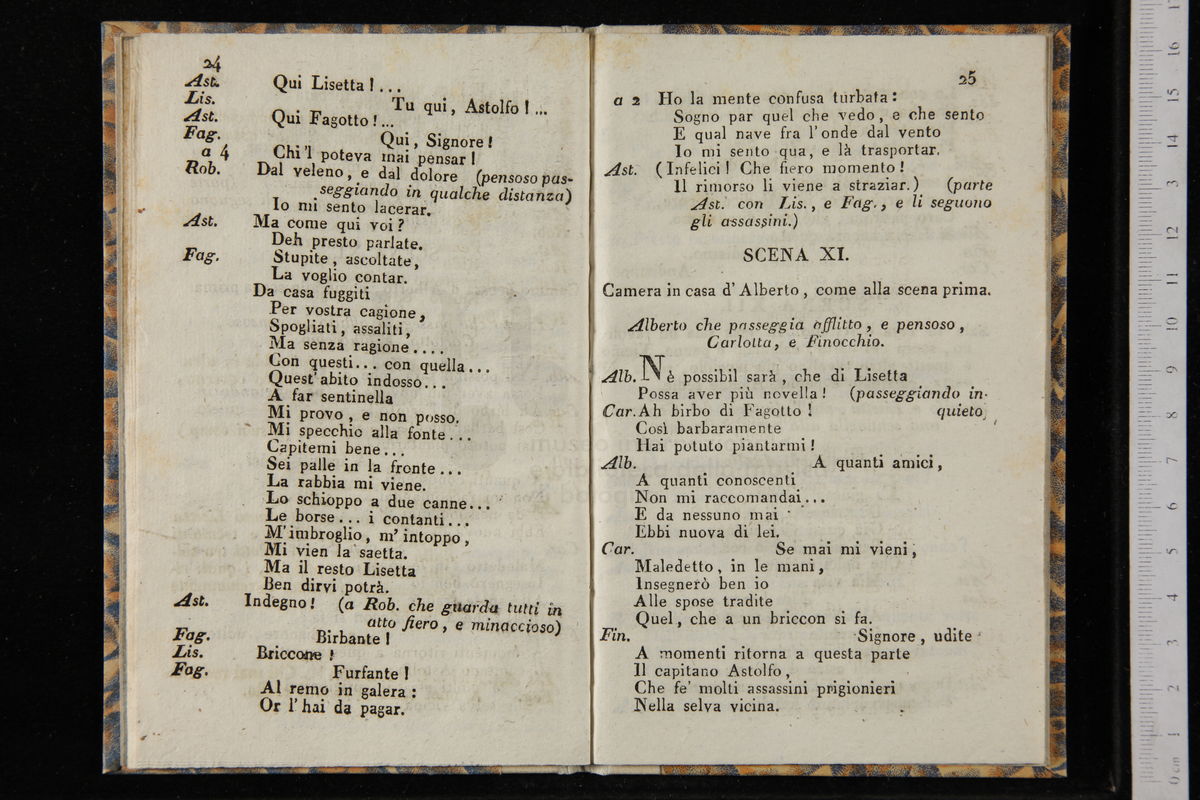 24
Ast. Qui Lisetta!...
Lis. Tu qui, Astolfo!...
Ast. Qui Fagotto!...
Fag. Qui, Signore!
a 4 Chi'l poteva mai pensar!
Rob. Dal veleno, e dal dolore (pensoso pas-
seggiando in qualche distanza)
Io mi sento lacerar.
Ast. Ma come qui voi?
Deh presto parlate.
Fag. Stupite, ascoltate,
La voglio contar.
Da casa fuggiti
Per vostra cagione,
Spogliati, assaliti,
Ma senza ragione....
Con questi... con quella...
Quest'abito indosso...
A far sentinella
Mi provo, e non posso.
Mi specchio alla fonte...
Capitemi bene...
Sei palle in la fronte...
La rabbia mi viene.
Lo schioppo a due canne...
Le borse... i contanti...
M'imbroglio, m'intoppo,
Mi vien la saetta.
Ma il resto Lisetta
Ben dirvi potrà.
Ast. Indegno! (a Rob. che guarda tutti in
atto fiero, e minaccioso)
Fag. Birbante!
Lis. Briccone!
Fag. Furfante!
Al remo in galera:
Or l'hai da pagar.
25
a 2 Ho la mente confusa turbata:
Sogno par quel che vedo, e che sento
E qual nave fra l'onde dal vento
Io mi sento qua, e là trasportar.
Ast. (Infelici! Che fiero momento!
Il rimorso li viene a straziar.) (parte
Ast. con Lis., e Fag., e li seguono
gli assassini.)
SCENA XI.
Camera in casa d'Alberto, come alla scena prima.
Alberto che passeggia afflitto, e pensoso,
Carlotta, e Finocchio.
Alb. Nè possibil sarà, che di Lisetta
Possa aver più novella! (passeggiando in-
Car. Ah birbo di Fagotto! quieto)
Così barbaramente
Hai potuto piantarmi!
Alb. A quanti amici,
A quanti conoscenti
Non mi raccomandai...
E da nessuno mai
Ebbi nuova di lei.
Car. Se mai mi vieni,
Maledetto, in le mani,
Insegnerò ben io
Alle spose tradite
Quel, che a un briccon si fa.
Fin. Signore, udite
A momenti ritorna a questa parte
Il capitano Astolfo,
Che fe' molti assassini prigionieri
Nella selva vicina.